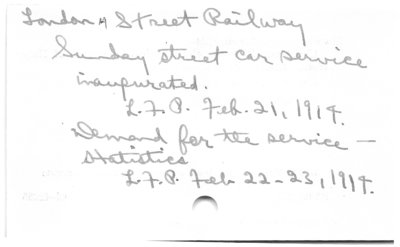 London Street Railway
Sunday street car service
inaugurated.
L.F.P. Feb. 21, 1914.
Demand for the service —
statistics
L.F.P. Feb 22-23, 1914.